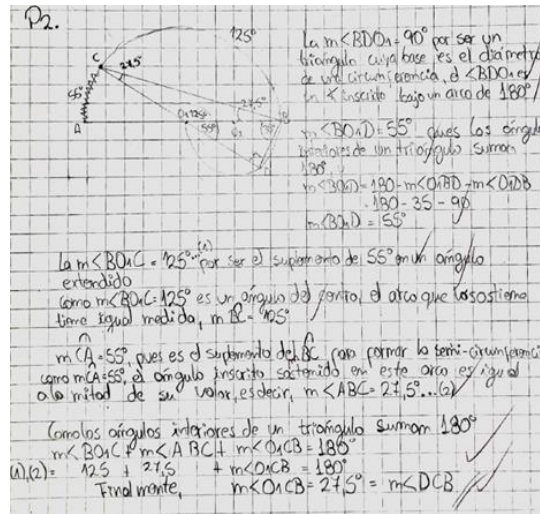 P2.
125°
C
27,5
55°
A
O1 125°
55°
27,5°
La m<BDO1 = 90° por ser un
triángulo cuya base es el diámetro
de una circunferencia, el <BDO1 es
un < inscrito bajo un arco de 180°
m<BO1D = 55° pues los ángulos
interiores de un triángulo suman
180°
m<BO1D = 180 - m<O1BD - m<O1DB
180 - 35 - 90
m<BO1D = 55°
La m<BO1C = 125°...(1) por ser el suplemento de 55° en un ángulo
extendido
como m<BO1C = 125° es un ángulo del centro, el arco que lo sostiene
tiene igual medida, m BC = 125°
m CA = 55° pues es el suplemento del BC para formar la semi-circunferencia
como m CA = 55°, el ángulo inscrito sostenido en este arco es igual
a la mitad de su valor, es decir, m<ABC = 27,5°...(2)
Como los ángulos interiores de un triángulo suman 180°
m<BO1C + m<ABC + m<O1CB = 180°
(1),(2) = 125 + 27,5 + m<O1CB = 180°
Finalmente, m<O1CB = 27,5° = m<DCB